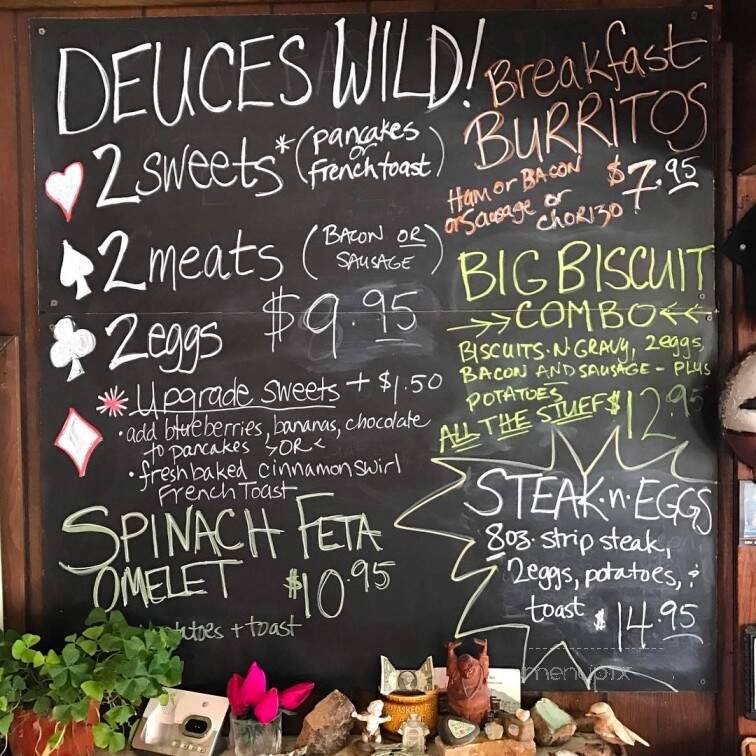 DEUCES WILD!
2 sweets* (pancakes
or
french toast)
2 meats (BACON OR
SAUSAGE)
2 eggs $9.95
* Upgrade sweets + $1.50
• add blueberries, bananas, chocolate
to pancakes >OR<
• fresh baked cinnamon swirl
French Toast
SPINACH FETA
OMELET $10.95
+ toast
Breakfast
BURRITOS
Ham or BACON
or Sausage or
CHORIZO $7.95
BIG BISCUIT
→>> COMBO <<
BISCUITS·N·GRAVY, 2 eggs,
BACON AND SAUSAGE - PLUS
POTATOES
ALL THE STUFF $12.95
STEAK·n·EGGS
8oz. strip steak,
2 eggs, potatoes, &
toast $14.95
menupix